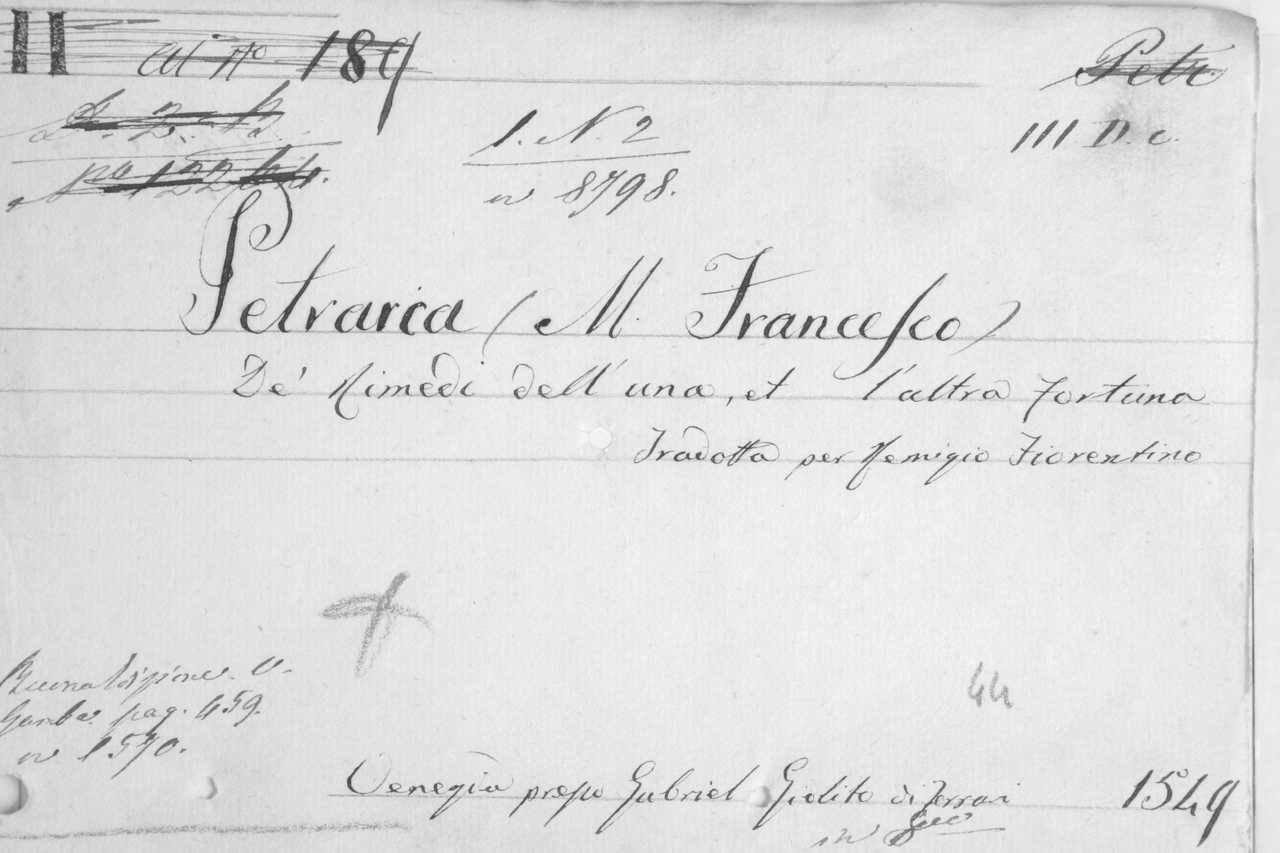 II al no 189
Petr.
1. N. 2
III D. c.
no 8798.
Petrarca (M. Francesco)
De' Rimedi dell' una, et l'altra Fortuna
Tradotta per Remigio Fiorentino
Buona edizione. V.
Gamba. pag. 459.
no 1570.
44
Venegia presso Gabriel Giolito di Ferrari 1549
in 8vo